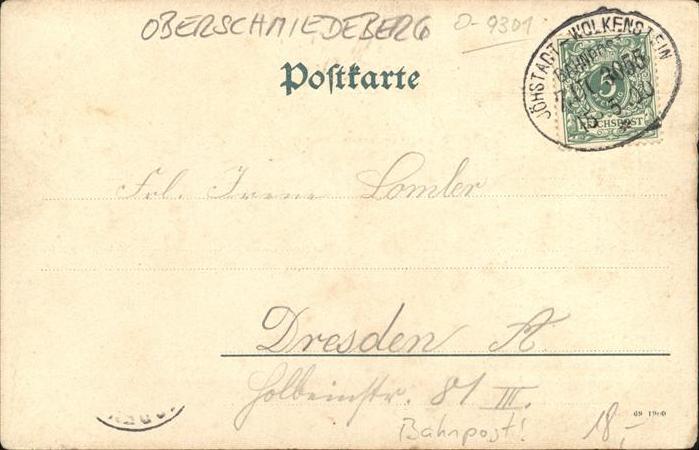 OBERSCHMIEDEBERG O-9301
Postkarte
JÖHSTADT - WOLKENSTEIN
BAHNPOST
ZUG 3055
5
REICHSPOST
Frl. Irene Lomler
Dresden A
Holbeinstr. 81 III.
69 1900
Bahnpost! 18,-